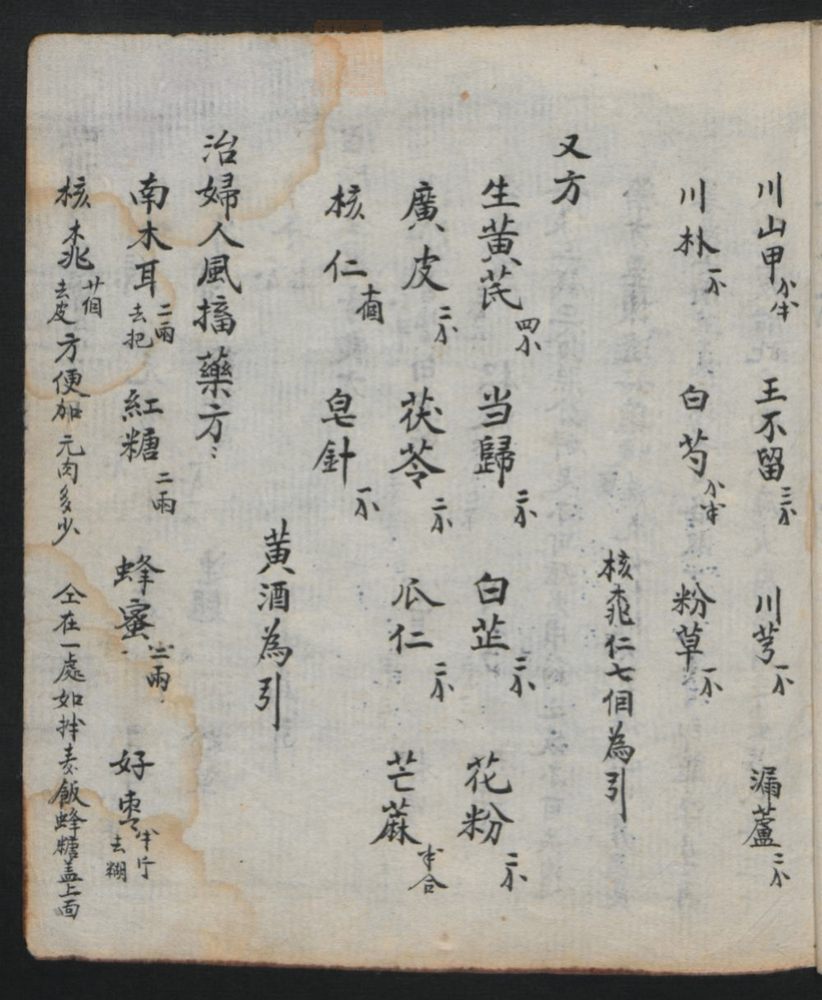 川山甲 小半 王不留 三小 川芎 一小 漏蘆 二小
川朴 一小 白芍 小半 粉草 一小
核桃仁七個為引
又方
生黄芪 四小 当歸 三小 白芷 三小 花粉 二小
廣皮 二小 茯苓 二小 瓜仁 二小 芒蔴 半合
核仁 十個 皂針 一小
黄酒為引
治婦人風搐藥方
南木耳 二兩 去把 紅糖 二兩 蜂蜜 兩 好枣 半斤 去糊
核桃 廿個 去皮 方便加元肉多少 仝在一處如拌麦飯蜂糖盖上面